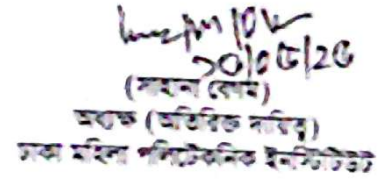 ২০/০৫/২৫
(সাহানা বেগম)
অধ্যক্ষ (অতিরিক্ত দায়িত্ব)
ঢাকা মহিলা পলিটেকনিক ইনস্টিটিউট